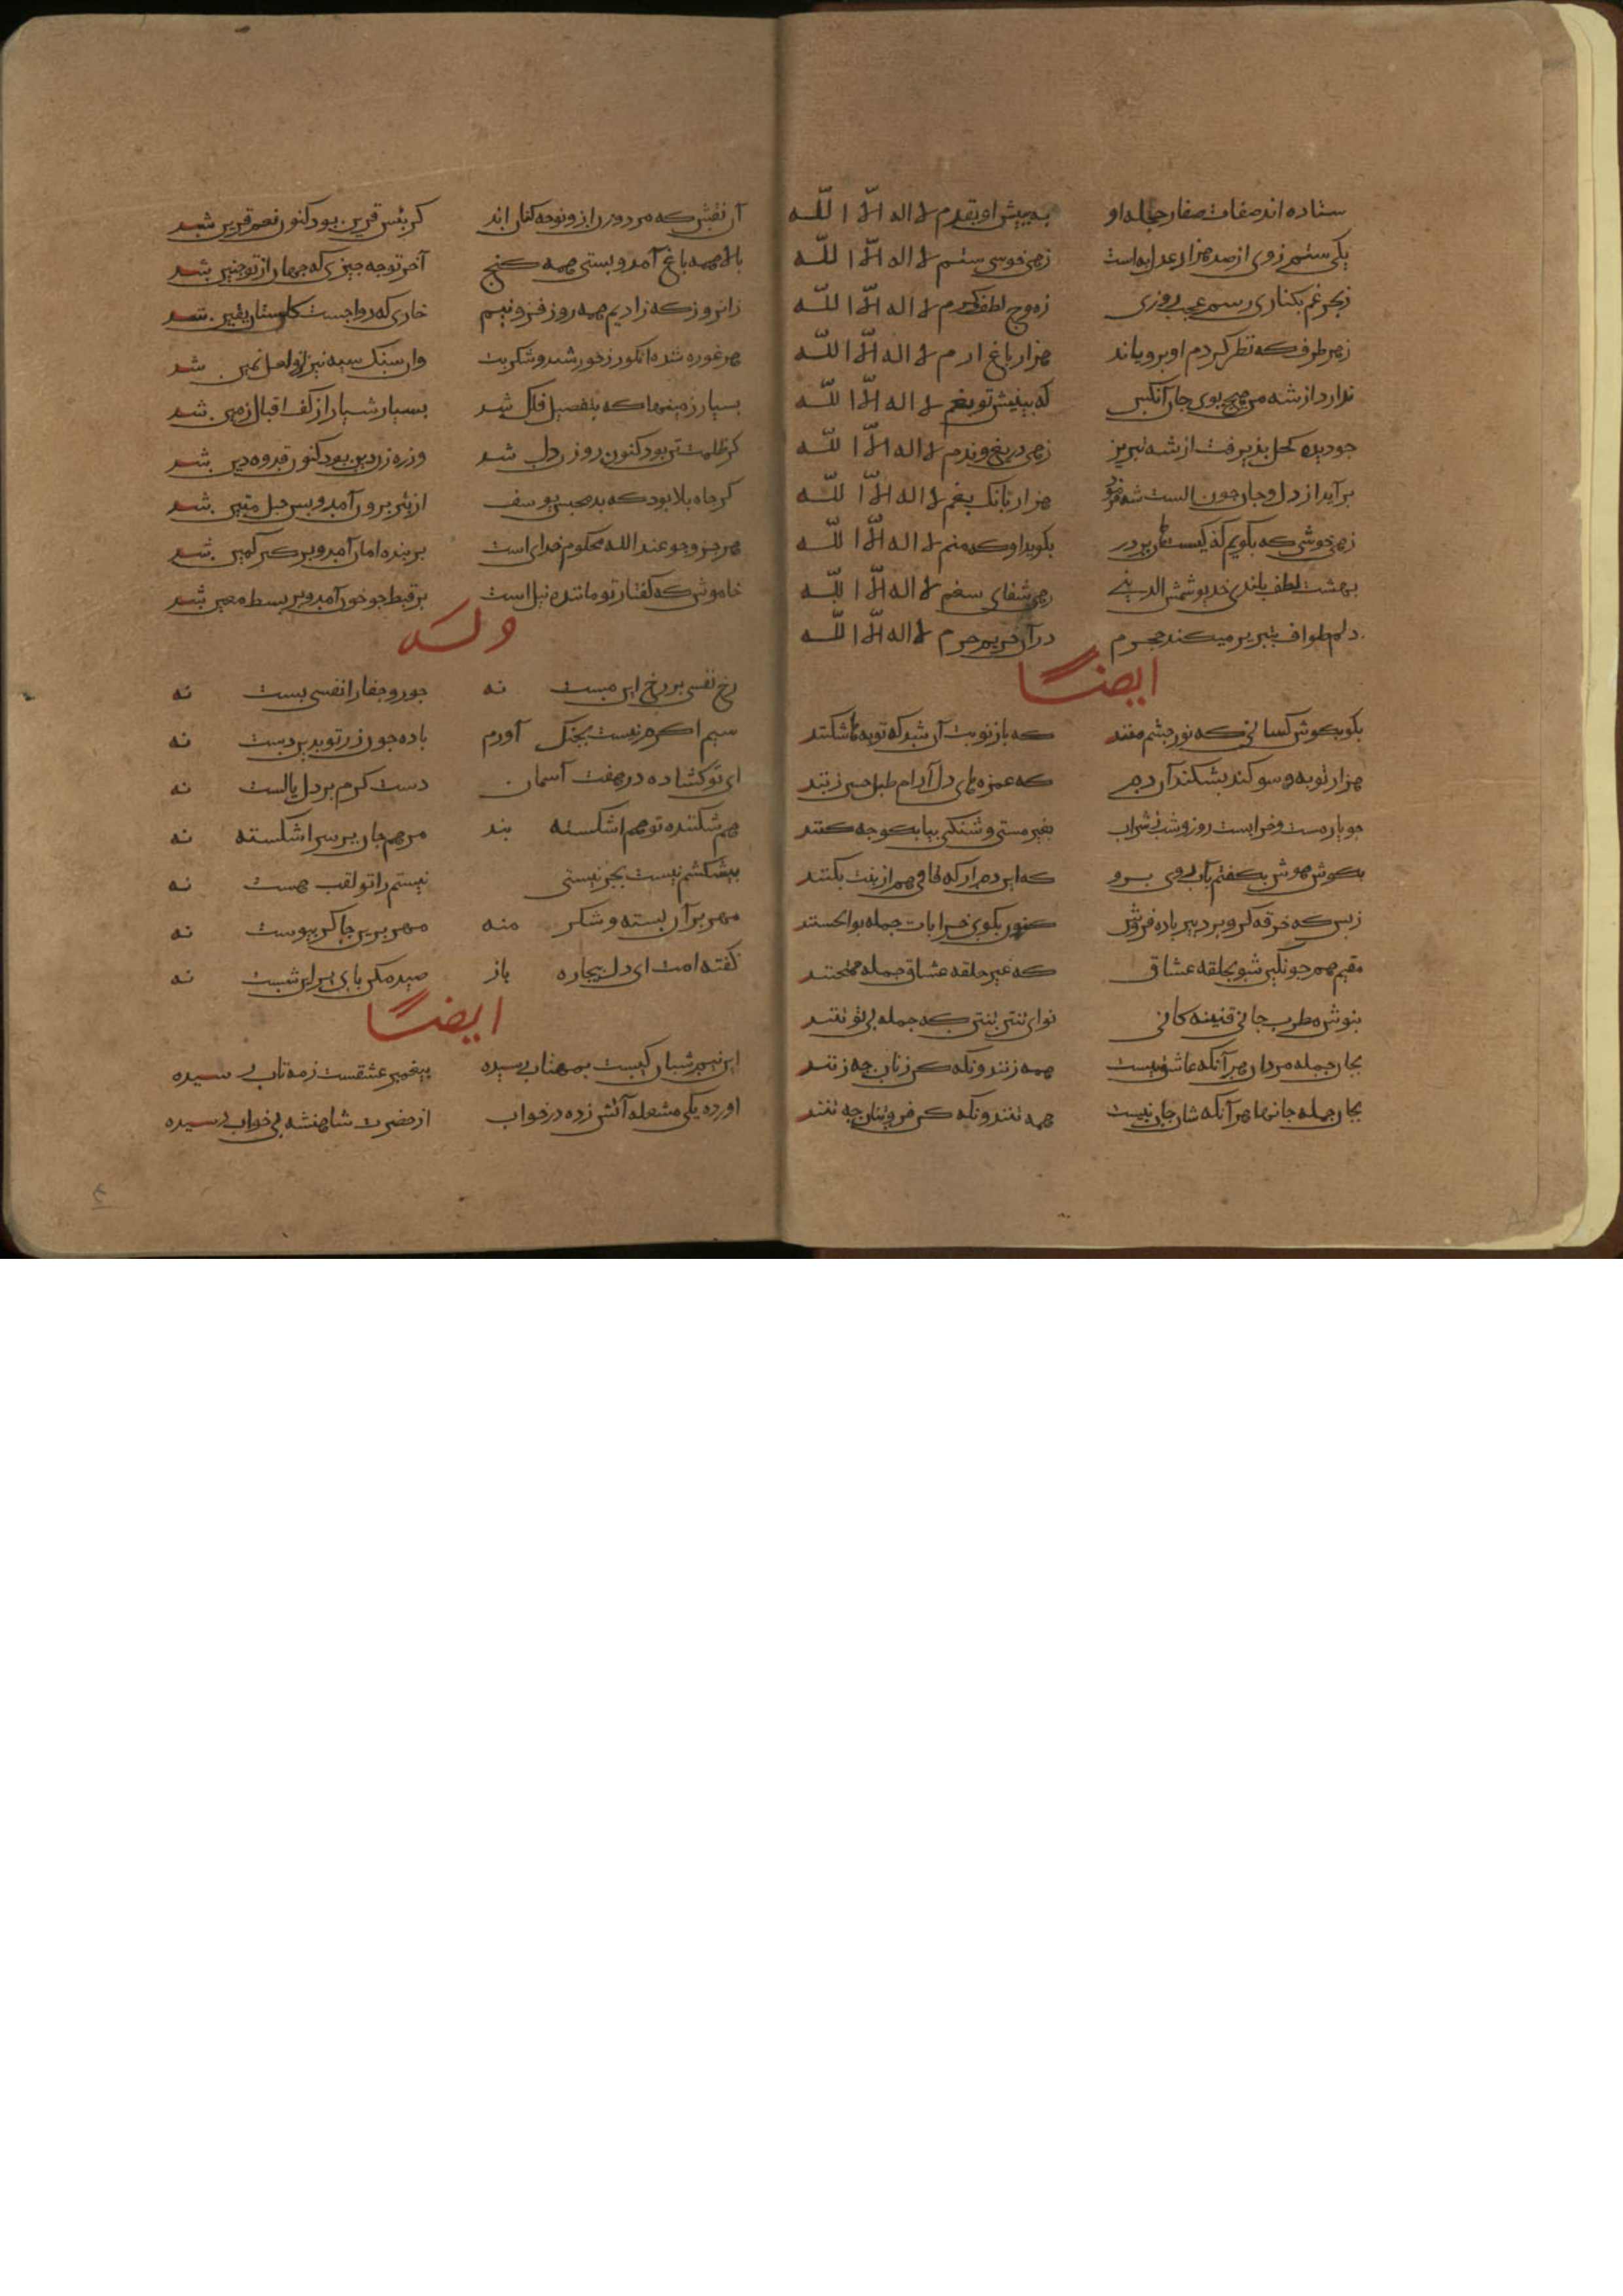 ستاده اند صفات صفا ز جمله او به پیش او بقدم لا اله الّا اللّه
یکی ستم ز وی از صد هزار عدل به است زهی خوشی ستم لا اله الّا اللّه
ز بحر غم بکناری رسم عجب روزی ز موج لطف کرم لا اله الّا اللّه
ز هر طرف که نظر کردم او برویاند هزار باغ ارم لا اله الّا اللّه
ندارد از شه من هیچ بوی جان آنکس که بینیش تو بغم لا اله الّا اللّه
جو دیده کحل بذیرفت از شه تبریز زهی دریغ و ندم لا اله الّا اللّه
بر آید از دل و جان جون الست شه هزار بانک بغم لا اله الّا اللّه
زهی خوشی که بکویم که کیست هان بر در بکوید او که منم لا اله الّا اللّه
بهشت لطف بلندی خدیو شمس الدینے زهی شفای سقم لا اله الّا اللّه
دلم طواف بتبریز میکند محرم در آن حریم حرم لا اله الّا اللّه
ایضًا
بکو بکوش کسانی که نور جشم منند که باز نوبت آن شد که توبه ها شکنند
هزار توبه و سوکند بشکنند آن دم که غمزه های دل آرام طبل حسن زنند
جو یار مست و خرابست روز و شب ز شراب بغیر مستی و شنکی بیا بکو جه کنند
بکوش هوش بکفتم بآب روی برو که این دم ار که قافی هم از بنت بکنند
ز بس که خرقه کرو برد پیر باده فروش کنون بکوی خرابات جمله بوالحسنند
مقیم همجو نکین شو بحلقه عشاق که غیر حلقه عشاق جمله ممتحنند
بنوش مطرب جانی قنینه کانی نوای تنتن تنتن که جمله بی تو تنند
بجان جمله مردان هر آنکه عاشق نیست همه زنند ونکه کن زنان جه زنند
بجان جمله جانها هر آنکه شان جان نیست همه تنند ونکه کن فروتنان جه تنند
آن نفس که مر دوزان ز و نوحه کنان اند کز بئس قرین بود کنون نعم قرین شد
بالا همه باغ آمد و بستی همه کنج آخر تو جه جیزی که جهان از تو جنین شد
زانروز که زادیم همه روز فزونیم خاری که روا جست کلستان یقین شد
هر غوره شده انکور ز خورشید و شکر بست وان سنک سیه نیز ازو لعل ثمین شد
بسیار زمینها که بتفصیل فلک شد بسیار شمار از کف اقبال زمین شد
کز ظلمت تن بود کنون روزن دل شد وز رهزن دین بود کنون قدوه دین شد
کر جاه بلا بود که بد محبس یوسف از بئر برون آمد و بس حبل متین شد
هر جزو جو عند الله محکوم خدای است بر بنده امان آمد و بر کبر کمین شد
خاموش که کفتار تو مانند نیل است بر قبط جو خون آمد و بر بسط معین شد
وله
رخ نفسی بر رخ این مست نه جور و جفا را نفسی بست نه
سیم اکرم نیست بجنک آورم باده جون زر تو بدین دست نه
ای تو کشاده در هفت آسمان دست کرم بر دل بابست نه
هم شکننده تو هم اشکسته بند مرهم جان بر سر اشکسته نه
بیشکشم نیست بجز نیستی نیستم را تو لقب هست نه
مهر بر آن بسته و شکر منه مهر برین جاکر بیوست نه
کفته امت ای دل بیجاره باز صید مکن بای برین شست نه
ایضًا
این نیم شبان کیست بمهتاب رسیده بیغمبر عشقست ز مه تاب رسیده
اورده یکی مشعله آتش زده در خواب از حضرت شاهنشه بی خواب رسیده